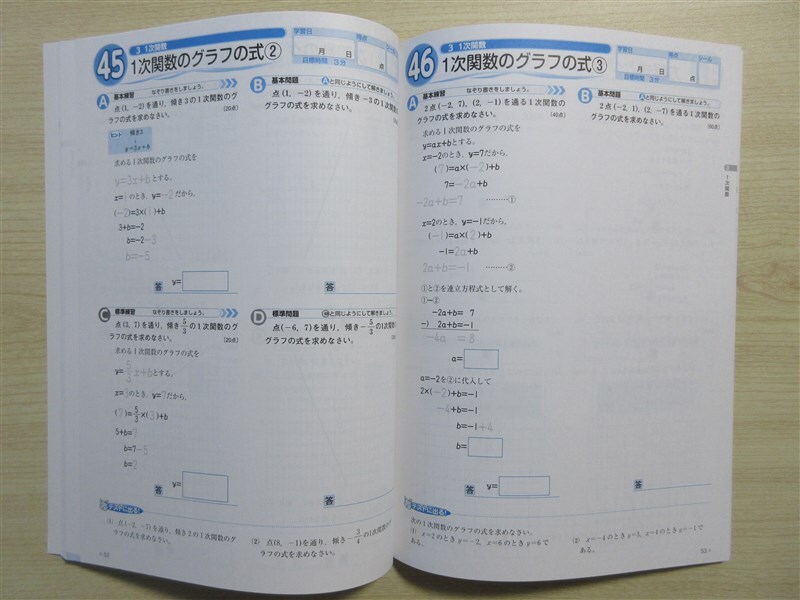 45
3 1次関数
1次関数のグラフの式②
学習日
月 日
得点
点
目標時間 3分
A 基本練習 なぞり書きをしましょう。
点(1, −2)を通り、傾き3の1次関数のグ
ラフの式を求めなさい。
[20点]
ヒント 傾き3
↓
y=3x+b
求める1次関数のグラフの式を
y=3x+bとする。
x=1のとき、y=−2だから、
(−2)=3×(1)+b
3+b=−2
b=−2−3
b=−5
答 y=
B 基本問題 Aと同じようにして解きましょう。
点(1, −2)を通り、傾き−3の1次関数
のグラフの式を求めなさい。
答
C 標準練習 なぞり書きをしましょう。
点(3, 7)を通り、傾き5/3の1次関数のグ
ラフの式を求めなさい。
[20点]
求める1次関数のグラフの式を
y=5/3x+bとする。
x=3のとき、y=7だから、
(7)=5/3×(3)+b
5+b=7
b=7−5
b=2
答 y=
D 標準問題 Cと同じようにして解きましょう。
点(−6, 7)を通り、傾き−5/3の1次関数
グラフの式を求めなさい。
答
テストに出る!
(1) 点(−2, −7)を通り、傾き3の1次関数のグ
ラフの式を求めなさい。
(2) 点(8, −1)を通り、傾き−3/4の1次関数の
ラフの式を求めなさい。
52
46
3 1次関数
1次関数のグラフの式③
学習日
月 日
得点
点
シール
目標時間 3分
A 基本練習 なぞり書きをしましょう。
2点(−2, 7), (2, −1)を通る1次関数の
グラフの式を求めなさい。
[40点]
求める1次関数のグラフの式を
y=ax+bとする。
x=−2のとき、y=7だから、
(7)=a×(−2)+b
7=−2a+b
−2a+b=7 ………①
x=2のとき、y=−1だから、
(−1)=a×(2)+b
−1=2a+b
2a+b=−1 ………②
①と②を連立方程式として解く。
①−②
−2a+b= 7
−) 2a+b=−1
−4a = 8
a=
a=−2を②に代入して
2×(−2)+b=−1
−4+b=−1
b=−1+4
b=
答 y=
B 基本問題 Aと同じようにして解きましょう。
2点(−2, 1), (2, −7)を通る1次関数の
グラフの式を求めなさい。
答
3
1次関数
テストに出る!
次の1次関数のグラフの式を求めなさい。
(1) x=2のときy=−2, x=6のときy=6で
ある。
(2) x=−4のときy=3, x=4のときy=−1で
ある。
53